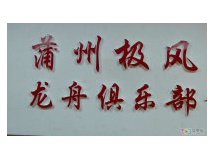 蒲州极风
龙舟俱乐部